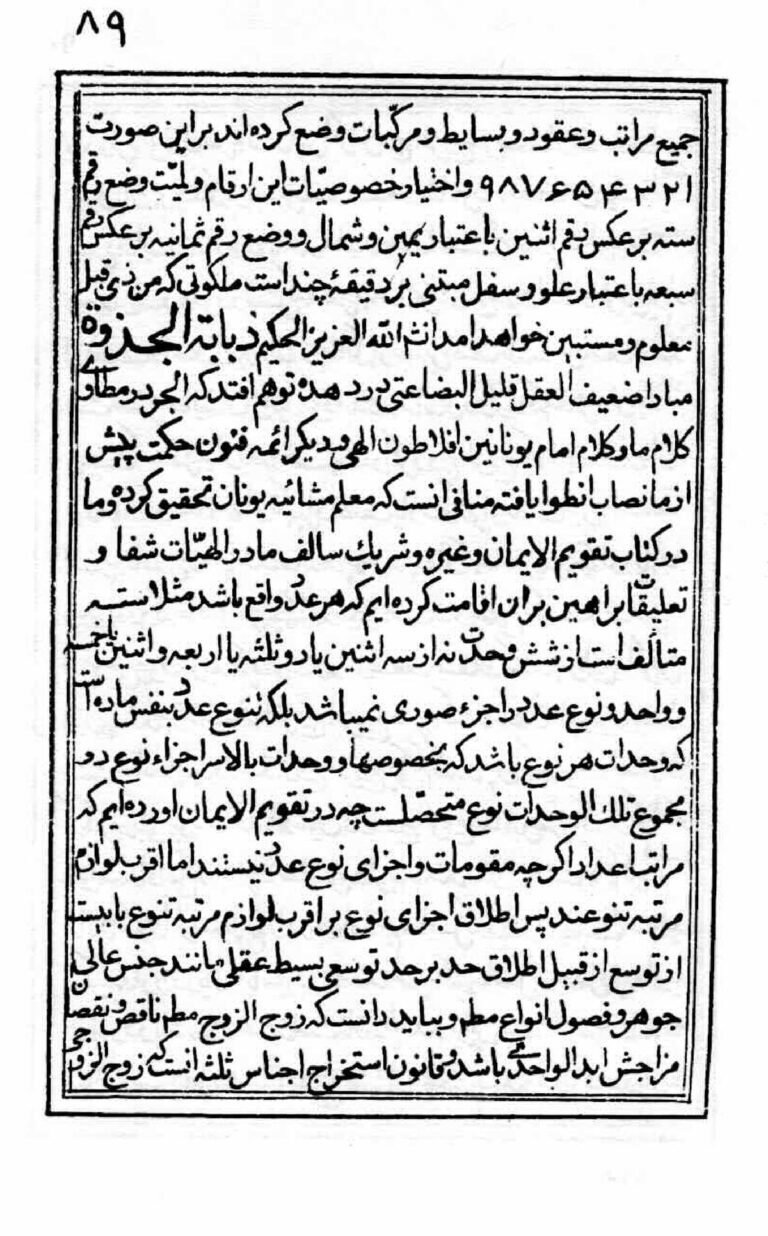 ۸۹
جمیع مراتب و عقود و بسایط و مرکّبات وضع کرده اند بر این صورت
۱ ۲ ۳ ۴ ۵ ۶ ۷ ۸ ۹ و اختیار خصوصیّات این ارقام و لمیّت وضع رقم
سته بر عکس رقم اثنین باعتبار یمین و شمال و وضع رقم ثمانیه بر عکس رقم
سبعه باعتبار علو و سفل مبتنی بر دقیقهٔ چند است ملکوتی که من ذی قبل
معلوم و مستبین خواهد امد انشا الله العزیز الحکیم ذبابة الجذوة
مبادا ضعیف العقل قلیل البضاعتی در دهده توهم افتد که الجر در مطاوی
کلام ما و کلام امام یونانین افلاطون الهی و دیکر ائمه فنون حکمت پیش
از ما نصاب انطوا یافته منافی انست که معلم مشائیه یونان تحقیق کرده و ما
در کتاب تقویم الایمان و غیره و شریك سالف ما در الهیّات شفا و
تعلیقات براهین بران اقامت کرده ایم که هر عدد واقع باشد مثلا سته
متألف است از شش وحدت نه از سه اثنین یا دو ثلثه یا اربعه و اثنین یا خمسه
و واحد و نوع عدد را جزء صوری نمیباشد بلکه تنوع عدد بنفس ماده است
که وحدات هر نوع باشد که بخصوصها و وحدات بالاسر اجزاء نوع دو
مجموع تلك الوحدات نوع متحصّلست چه در تقویم الایمان اورده ایم که
مراتب اعداد اکرچه مقومات و اجزای نوع عدد نیستند اما اقرب لوازم
مرتبه تنوعند پس اطلاق اجزای نوع بر اقرب لوازم مرتبه تنوع بابیست
از توسع از قبیل اطلاق حد بر حد توسعی بسیط عقلی مانند جنس عالی
جوهر و فصول انواع مطم و بباید دانست که زوج الزوج مطم ناقص و نقصان
مزاجش ابدا لواحد می باشد و قانون استخراج اجناس ثلثه انست که زوج الزوج